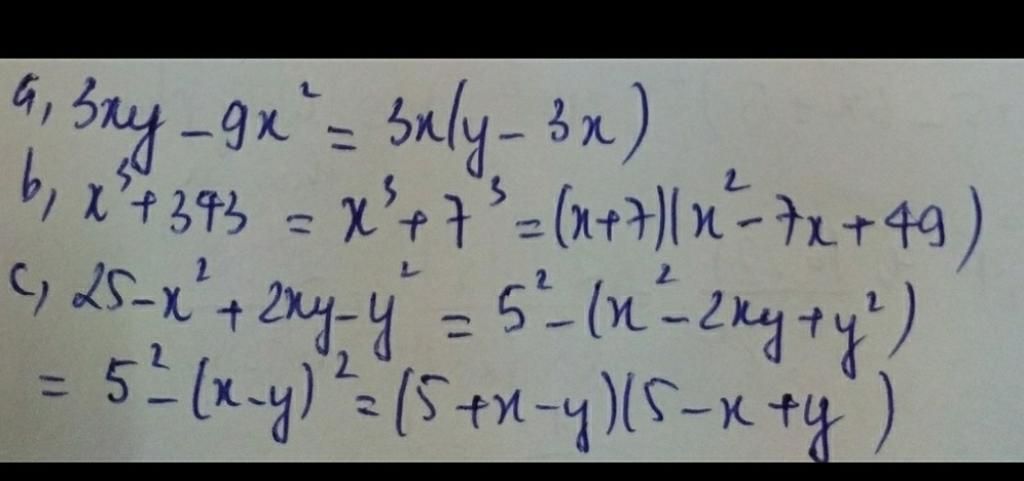 a, 3xy - 9x² = 3x(y - 3x)
b, x³ + 343 = x³ + 7³ = (x+7)(x² - 7x + 49)
c, 25 - x² + 2xy - y² = 5² - (x² - 2xy + y²)
= 5² - (x - y)² = (5 + x - y)(5 - x + y)